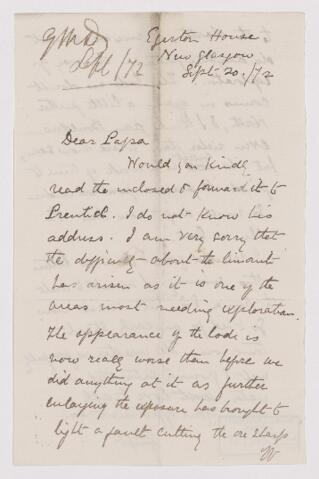 GMD
Sept /72
Egerton House
New Glasgow
Sept 20./72
Dear Papa
Would you kindly
read the inclosed & forward it to
Prentice. I do not know his
address. I am very sorry that
the difficulty about the limonite
has arisen as it is one of the
areas most needing exploration.
The appearance of the lode is
now really worse than before we
did anything at it as further
enlarging the exposure has brought to
light a fault cutting the ore sharp